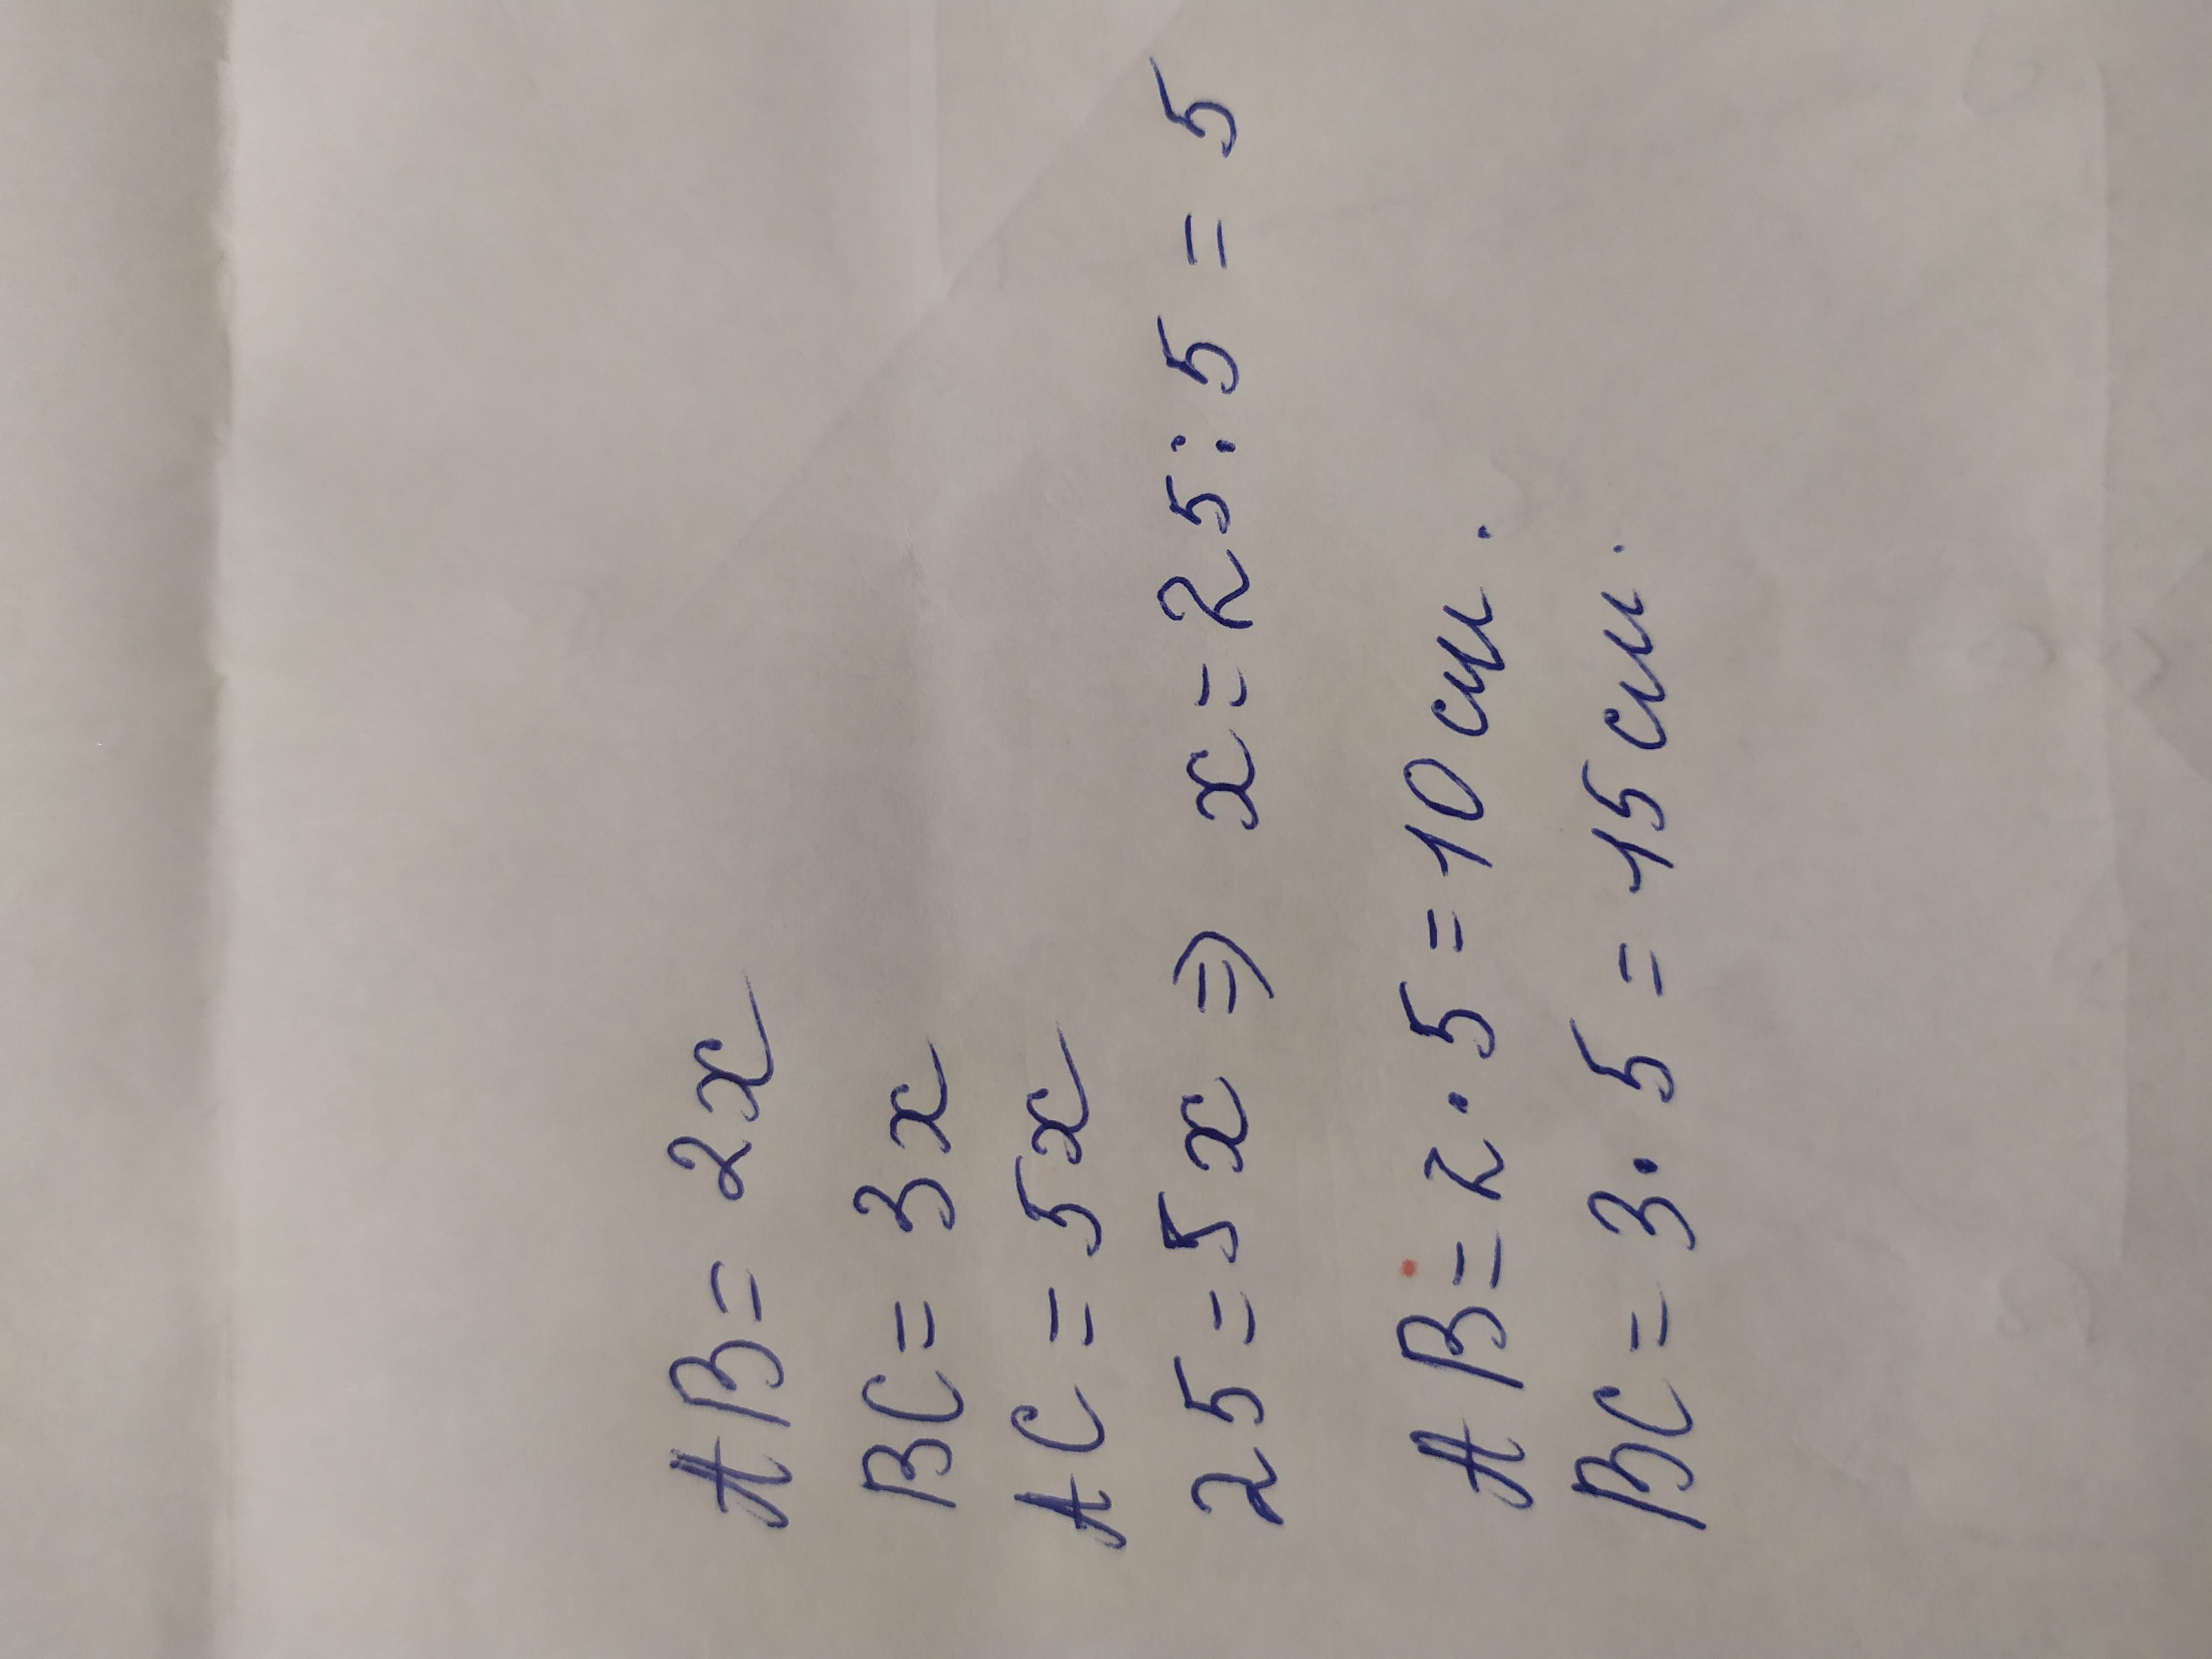 AB = 2x
BC = 3x
AC = 5x
25 = 5x ⇒ x = 25 : 5 = 5
AB = 2 · 5 = 10 см.
BC = 3 · 5 = 15 см.